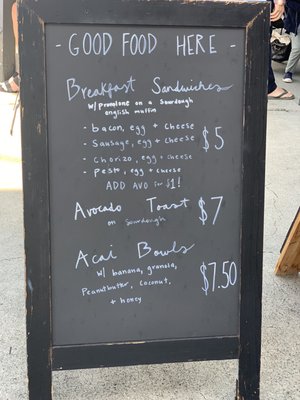 - GOOD FOOD HERE -
Breakfast Sandwiches
w/ provolone on a sourdough
english muffin
- bacon, egg + cheese
- Sausage, egg + cheese
- Chorizo, egg + cheese
- Pesto, egg + cheese
$5
ADD AVO for $1!
Avocado Toast
on sourdough
$7
Acai Bowls
w/ banana, granola,
Peanutbutter, Coconut,
+ honey
$7.50